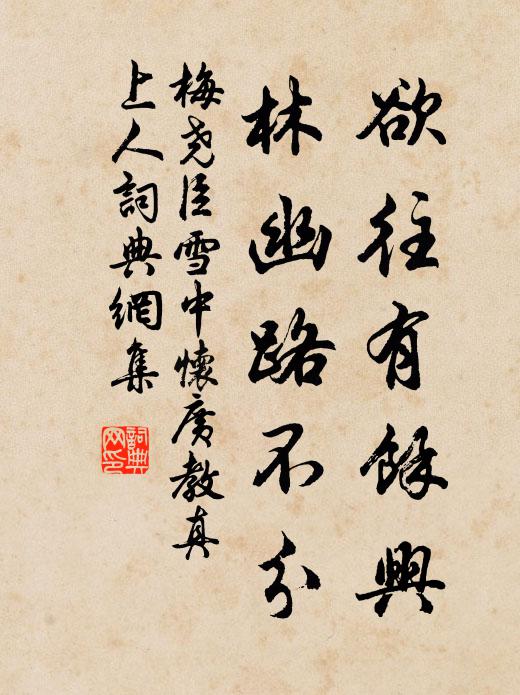 欲往有餘興
林幽路不分
梅堯臣雪中懷廣教真
上人詞典網集
詞典網印